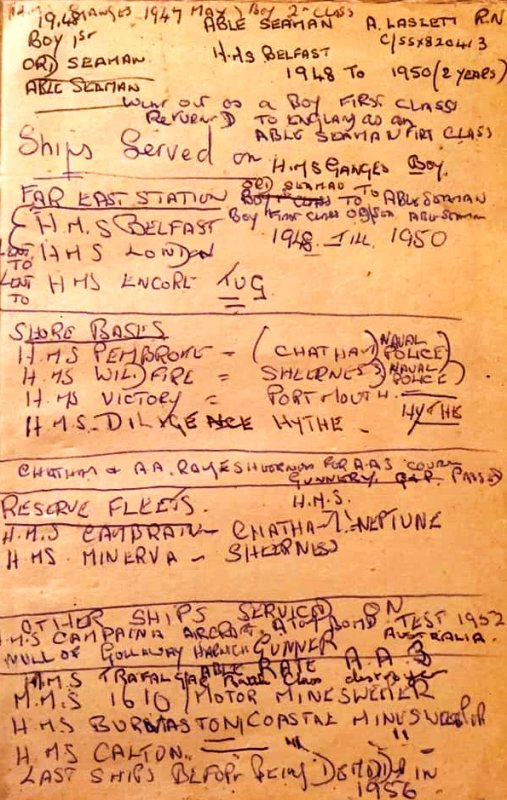 H.M.S GANGES 1947 MAY BOY 2nd CLASS
1948
BOY 1ST
ORD SEAMAN
ABLE SEAMAN
ABLE SEAMAN
A. LASLETT R.N
C/SSX820413
H.M.S BELFAST
1948 TO 1950 (2 YEARS)
WENT OUT AS A BOY FIRST CLASS
RETURNED TO ENGLAND AS AN
ABLE SEAMAN FIRT CLASS
Ships Served on
H.M.S GANGES BOY.
ORD SEAMAN TO
FAR EAST STATION BOY CLASS TO ABLE SEAMAN
H.M.S BELFAST BOY FIRST CLASS ORD/SEA ABLE SEAMAN
1948 TILL 1950
LENT TO H M S LONDON
LENT TO H MS ENCORE TUG
SHORE BASES
H.M.S PEMBROKE = (CHATHAM) NAVAL POLICE)
H.MS WILDFIRE = SHEERNESS) NAVAL POLICE)
H.MS VICTORY = PORTMOUTH.
H.MS. DILIGENCE HYTHE - HYTHE
CHATHAM & A.A. RANGE SHEERNESS FOR A.A3 COURSE
GUNNERY PASSED
RESERVE FLEETS. H.M.S.
H.M.S CAMBRAIN - CHATHAM NEPTUNE
H MS MINERVA - SHEERNESS
OTHER SHIPS SERVED ON
H.M.S CAMPAINA AIRCRAFT ATOM BOMB TEST 1952
AUSTRALIA.
MULL OF GALLOWAY GUNNER
ABLE RATE A.A 3
H.M.S TRAFALGAR Class destroyer
M.M.S 1610 MOTOR MINESWEEPER
H M S BURNASTON COASTAL MINESWEEPER
H MS CALTON.. " "
LAST SHIPS BEFORE BEING DEMOBED IN
1956